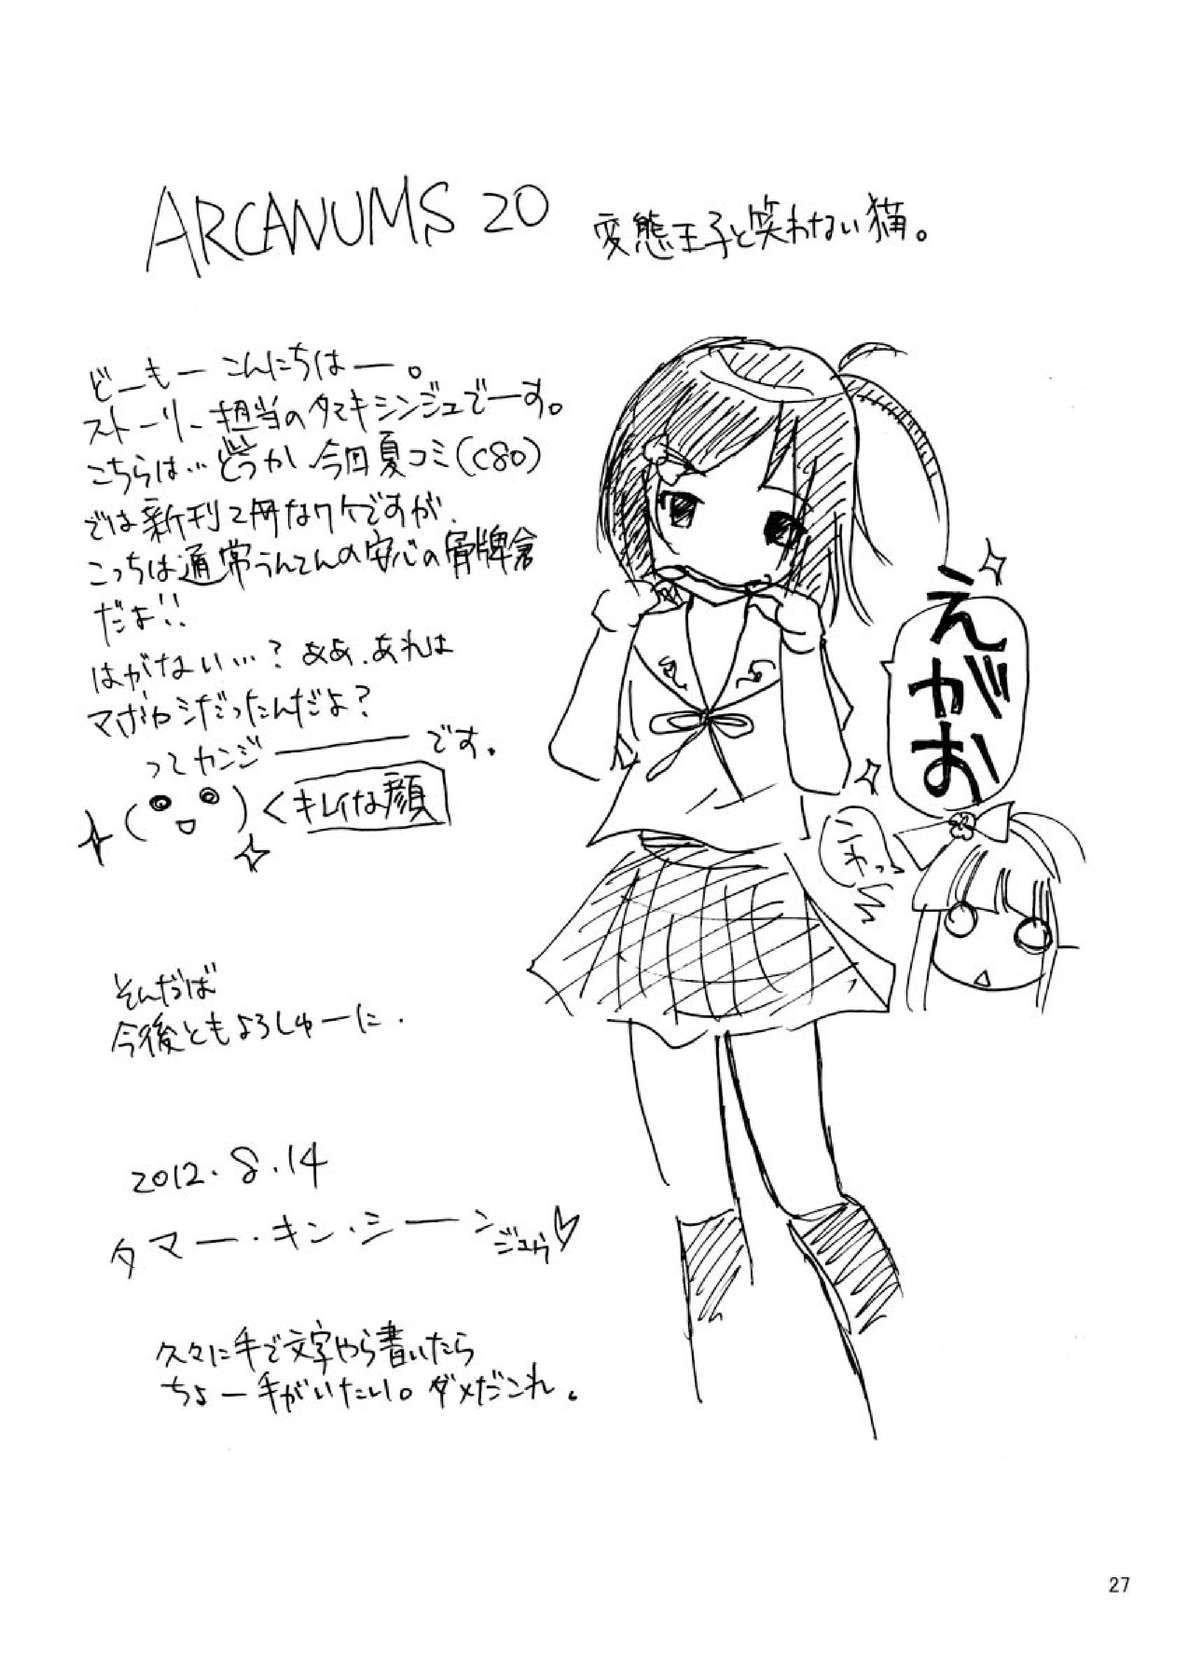 ARCANUMS 20
変態王子と笑わない猫。
どーもー こんにちはー。
ストーリー担当のタマキシンジュでーす。
こちらは… どうか 今回夏コミ(C80)
では新刊2冊なワケですが、
こっちは通常うんてんの安心の骨牌倉
だよ!!
はがない…? ああ、あれは
マボロシだったんだよ?
ってカンジーーーーです。
キレイな顔
えがお
こわっ
そんだば
今後ともよろしゅーに.
2012.8.14
タマー・キン・シーン
ジュゥ♡
久々に手で文字やら書いたら
ちょー手がいたい。ダメだこれ。
27